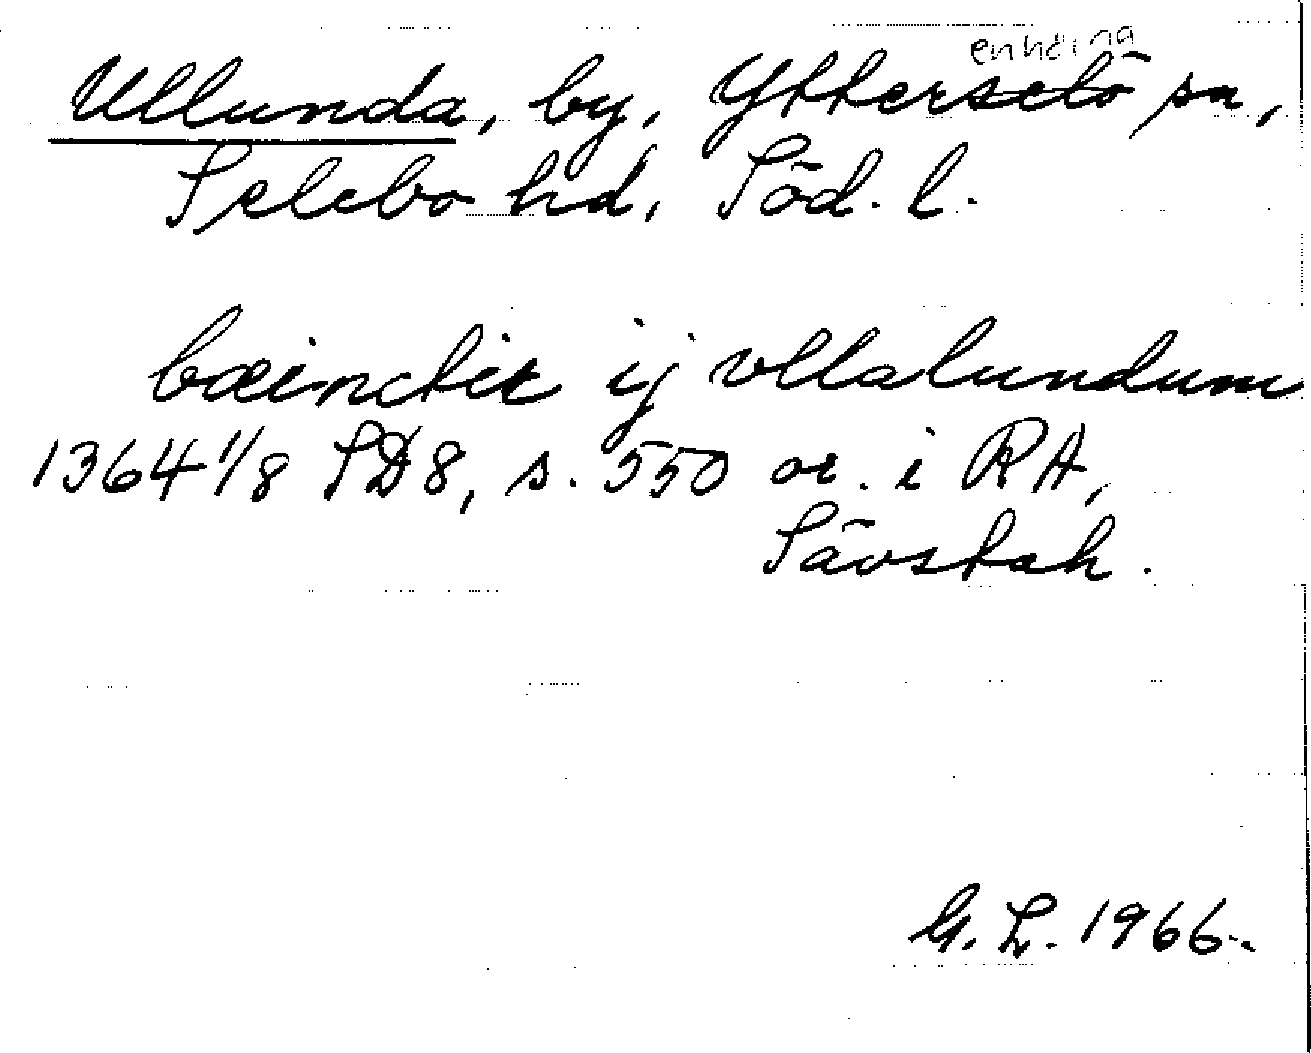 enhörna
Ullunda, by, Ytterselö sn,
Selebo hd, Söd. l.
bæinctir ij vllalundum
1364 1/8 SD8, s. 550 or. i RA,
Sävstah.
G. L. 1966.